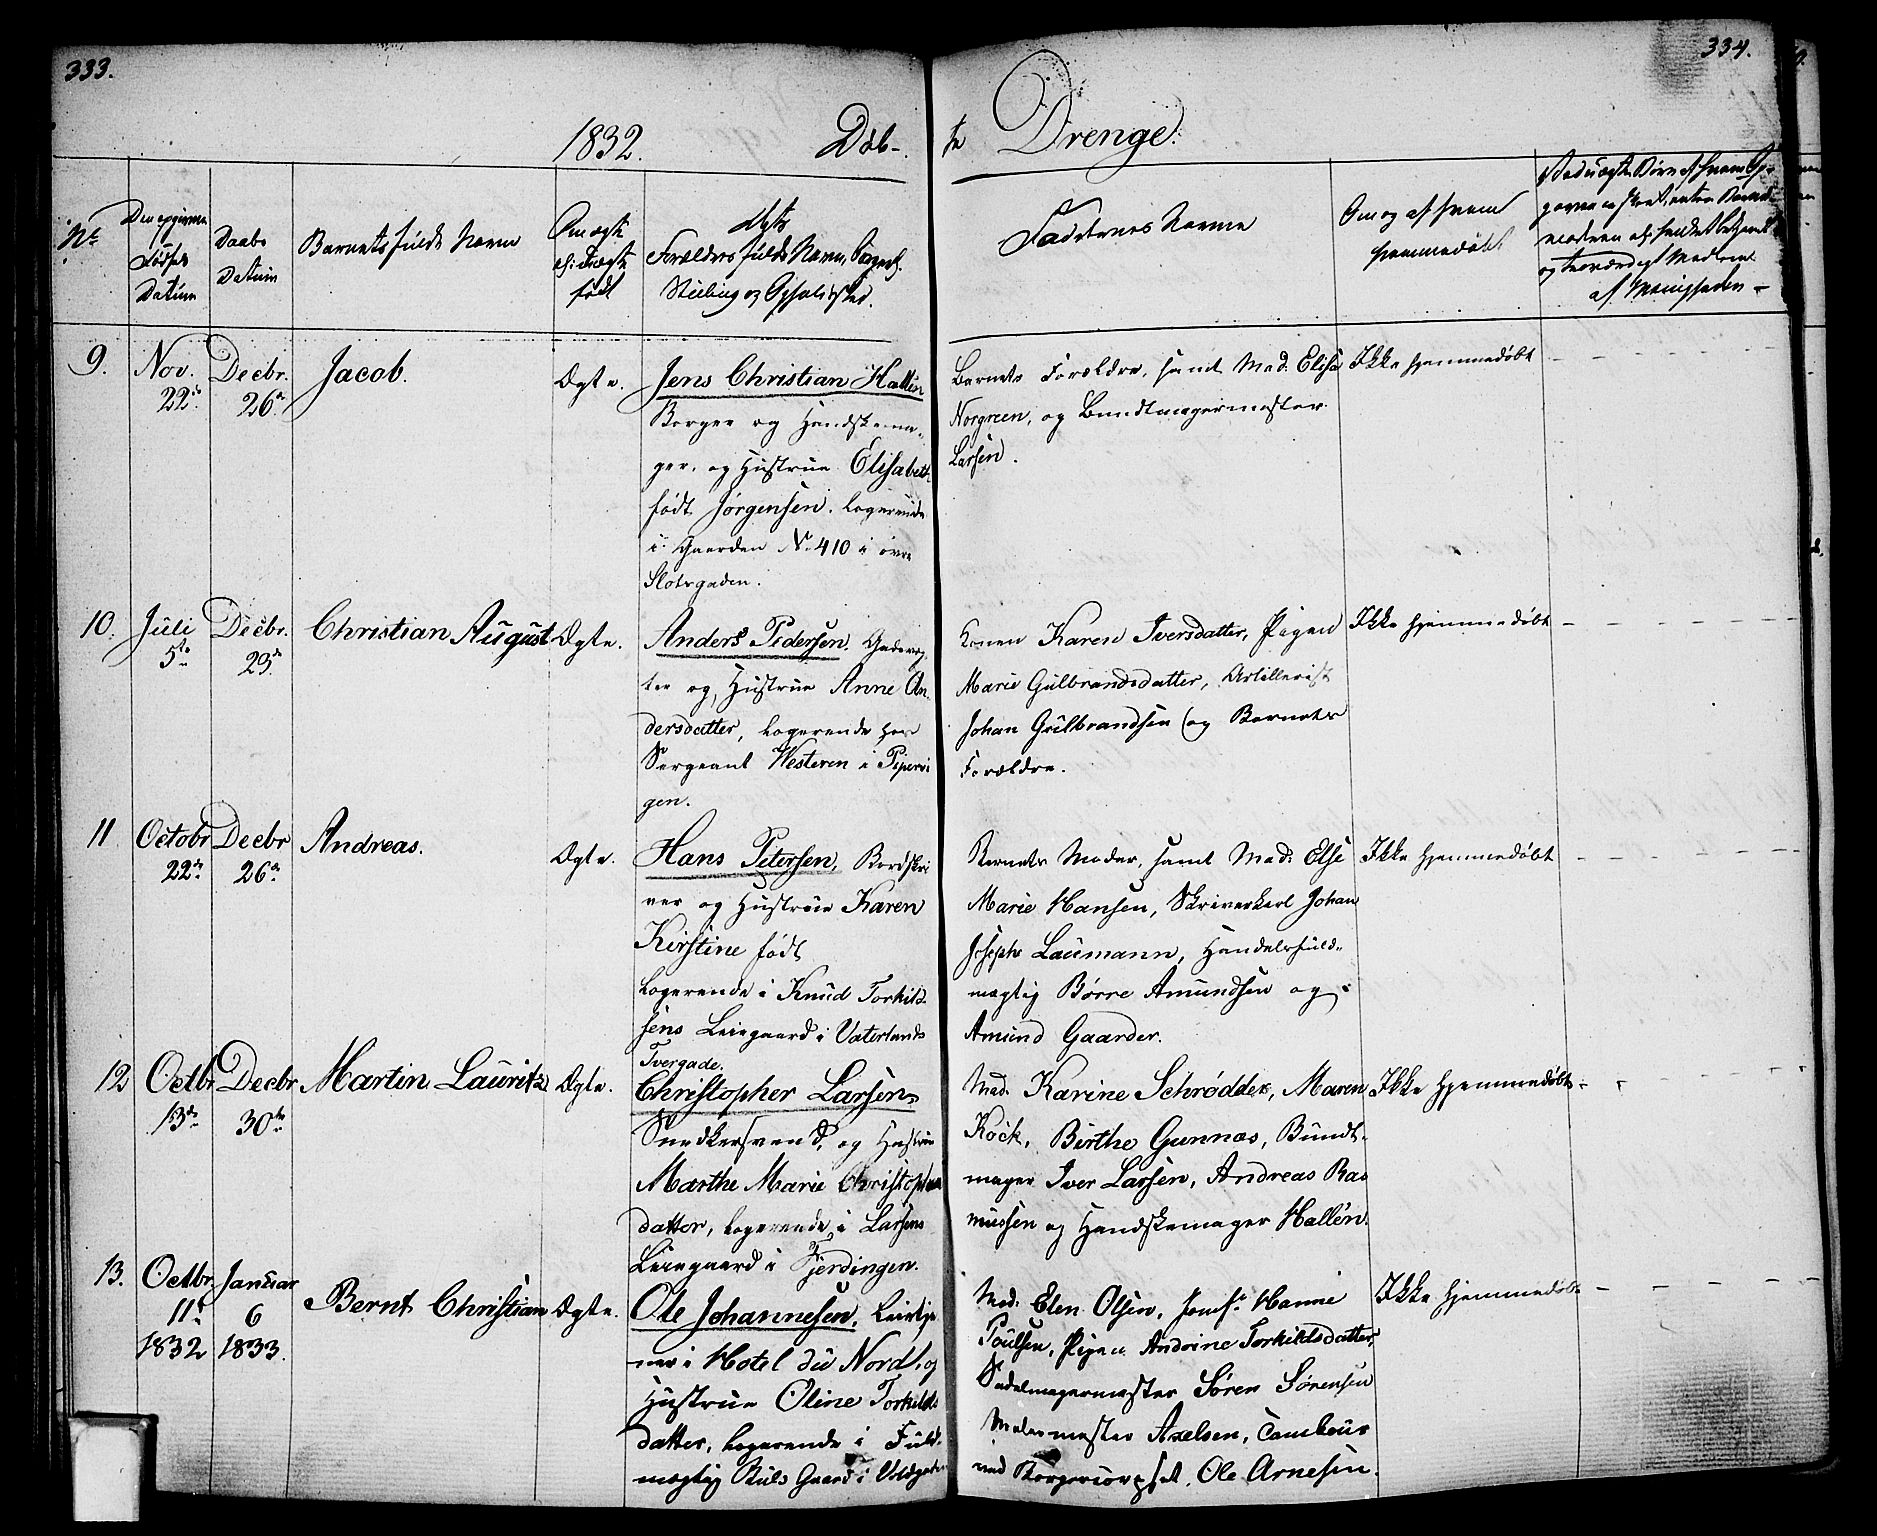 333.
334.
1832.
Døb-
te Drenge.
No
Den opgivne
Fødsels
Datum
Daabs
Datum
Barnets fulde Navn
Om ægte
el: uægte
født
Forældres fulde Navn,
Stilling og Opholdssted.
Faddernes Navne
Om og af hvem
hjemmedøbt
af Menigheden
9.
Nov.
22de
Decbr.
26de
Jacob.
Ægte.
Jens Christian Hallén
Borger og Handskema-
ger, og Hustrue Elisabeth
født Jørgensen. Logerende
i Gaarden No 410 i øvre
Slotsgaden.
Barnets Forældre, samt Mad. Elise
Norgreen, og Bundtmagermester
Larsen.
Ikke hjemmedøbt
10.
Juli
5te
Decbr.
23de
Christian August
Ægte.
Anders Pedersen. Gadevæg-
ter og Hustrue Anne An-
dersdatter, Logerende hos
Sergeant Westeren i Pipervi
gen.
Konen Karen Iversdatter, Pigen
Marie Gulbrandsdatter, Artillerist
Johan Gulbrandsen og Barnets
Forældre.
Ikke hjemmedøbt
11
Octobr
22de
Decbr
26de
Andreas.
Ægte.
Hans Petersen, Bordskri
ver og Hustrue Karen
Kirstine født
Logerende i Knud Torkild
sens Leiegaard i Vaterlands
Tvergade.
Barnets Moder, samt Mad: Else
Marie Hansen, Skriverkarl Johan
Joseph Laumann, Handelsfuld-
mægtig Børre Amundsen og
Amund Gaarder.
Ikke hjemmedøbt
12
Octbr
13de
Decbr
30te
Martin Lauritz
Ægte.
Christopher Larsen
Snedkersvend, og Hustrue
Marthe Marie Christophers
datter, Logerende i Larsens
Leiegaard i Fjerdingen.
Mad. Karine Schrødder, Maren
Kock, Birthe Gunnas, Bundt-
mager Iver Larsen, Andreas Ras
mussen og Handskemager Hallén.
Ikke hjemmedøbt
13.
Octbr.
11te
1832
Januar
6
1833.
Bernt Christian
Ægte.
Ole Johannesen, Leietje
ner i Hotel du Nord, og
Hustrue Oline Torkilds
datter, Logerende i Fuld-
mægtig Buls Gaard i Voldgaden
Mad. Elen Olsen, Jomf. Hanne
Poulsen, Pigen Andrine Torkildsdatter,
Sadelmagermester Søren Sørensen
Malermester Axelsen, Tambour
ved Borgercorpset Ole Arnesen.
Ikke hjemmedøbt